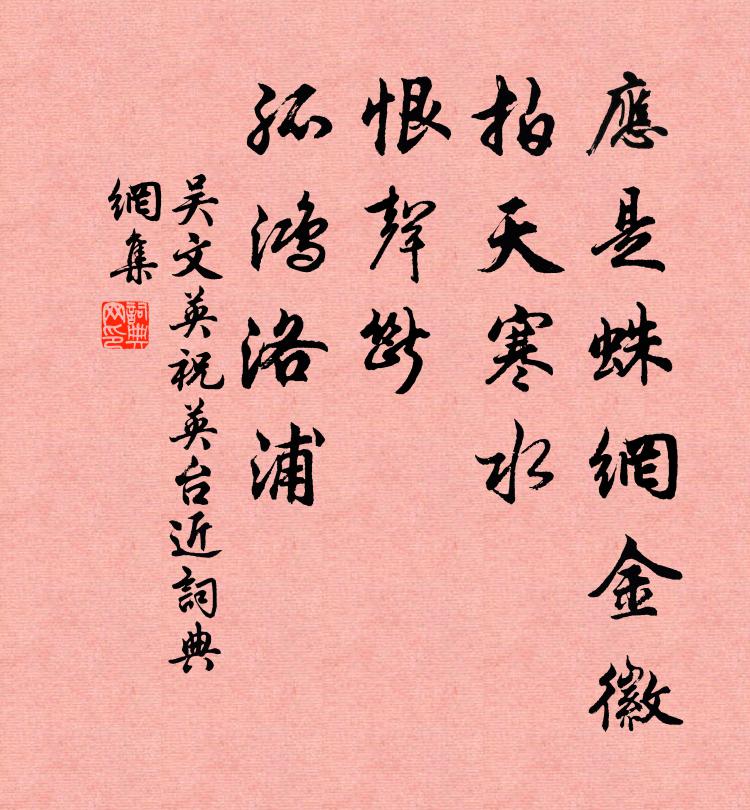 應是蛛網金徽
拍天寒水
恨聲斷
孤鴻洛浦
吴文英祝英台近詞典
網集
詞典
网印